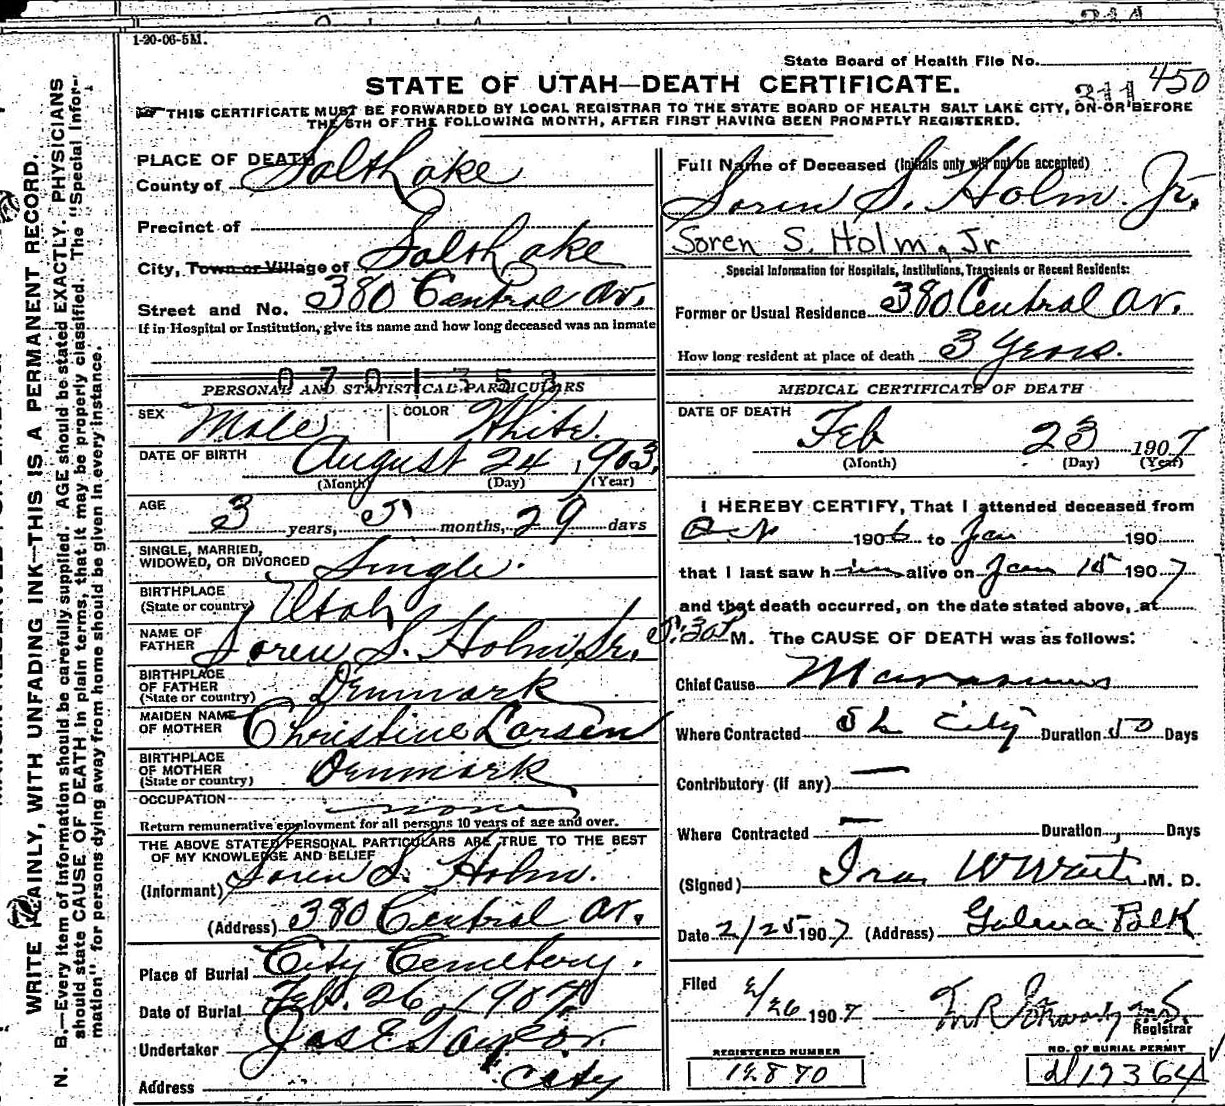 1-20-06-5M.
State Board of Health File No.
STATE OF UTAH—DEATH CERTIFICATE.
311 450
THIS CERTIFICATE MUST BE FORWARDED BY LOCAL REGISTRAR TO THE STATE BOARD OF HEALTH SALT LAKE CITY, ON OR BEFORE
THE 5TH OF THE FOLLOWING MONTH, AFTER FIRST HAVING BEEN PROMPTLY REGISTERED.
WRITE PLAINLY, WITH UNFADING INK—THIS IS A PERMANENT RECORD.
N. B.—Every item of information should be carefully supplied. AGE should be stated EXACTLY. PHYSICIANS
should state CAUSE OF DEATH in plain terms, that it may be properly classified. The "Special Infor-
mation" for persons dying away from home should be given in every instance.
PLACE OF DEATH
County of Salt Lake
Precinct of
City, Town or Village of Salt Lake
Street and No. 380 Central Av.
If in Hospital or Institution, give its name and how long deceased was an inmate
0701353
PERSONAL AND STATISTICAL PARTICULARS
SEX Male COLOR White.
DATE OF BIRTH August 24, 1903.
(Month) (Day) (Year)
AGE 3 years, 5 months, 29 days
SINGLE, MARRIED,
WIDOWED, OR DIVORCED Single.
BIRTHPLACE
(State or country) Utah
NAME OF
FATHER Soren S. Holm Sr.
BIRTHPLACE
OF FATHER
(State or country) Denmark
MAIDEN NAME
OF MOTHER Christine Larsen
BIRTHPLACE
OF MOTHER
(State or country) Denmark
OCCUPATION none
Return remunerative employment for all persons 10 years of age and over.
THE ABOVE STATED PERSONAL PARTICULARS ARE TRUE TO THE BEST
OF MY KNOWLEDGE AND BELIEF
(Informant) Soren S. Holm.
(Address) 380 Central Av.
Place of Burial City Cemetery.
Date of Burial Feb. 26, 1907
Undertaker Jas E Taylor.
Address City
Full Name of Deceased (Initials only will not be accepted)
Soren S. Holm Jr.
Soren S. Holm, Jr
Special Information for Hospitals, Institutions, Transients or Recent Residents:
Former or Usual Residence 380 Central Av.
How long resident at place of death 3 Years.
MEDICAL CERTIFICATE OF DEATH
DATE OF DEATH
Feb 23 1907
(Month) (Day) (Year)
I HEREBY CERTIFY, That I attended deceased from
1906 to Jan 190
that I last saw him alive on Jan 15 1907
and that death occurred, on the date stated above, at
5:30P M. The CAUSE OF DEATH was as follows:
Chief Cause Marasmus
Where Contracted S L City Duration 50 Days
Contributory (if any) —
Where Contracted — Duration Days
(Signed) Ira W M. D.
Date 2/25 1907 (Address) Galena Bolk
Filed 2/26 1907
Registrar
REGISTERED NUMBER
12870
NO. OF BURIAL PERMIT
d17364